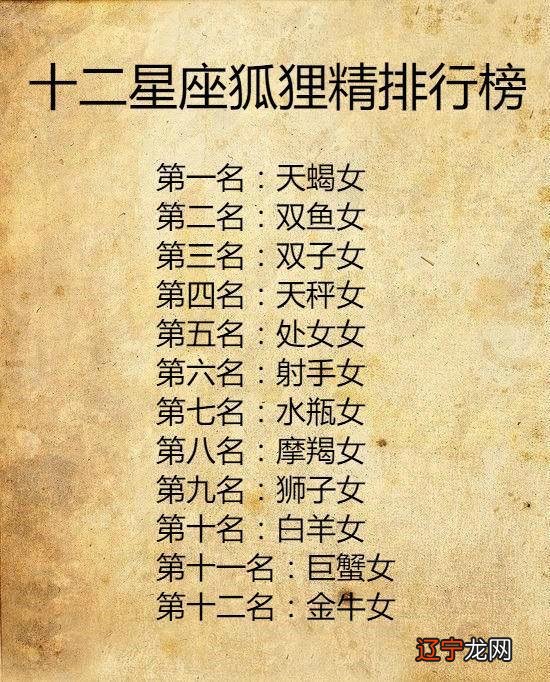 十二星座狐狸精排行榜
第一名：天蝎女
第二名：双鱼女
第三名：双子女
第四名：天秤女
第五名：处女女
第六名：射手女
第七名：水瓶女
第八名：摩羯女
第九名：狮子女
第十名：白羊女
第十一名：巨蟹女
第十二名：金牛女
辽宁龙网